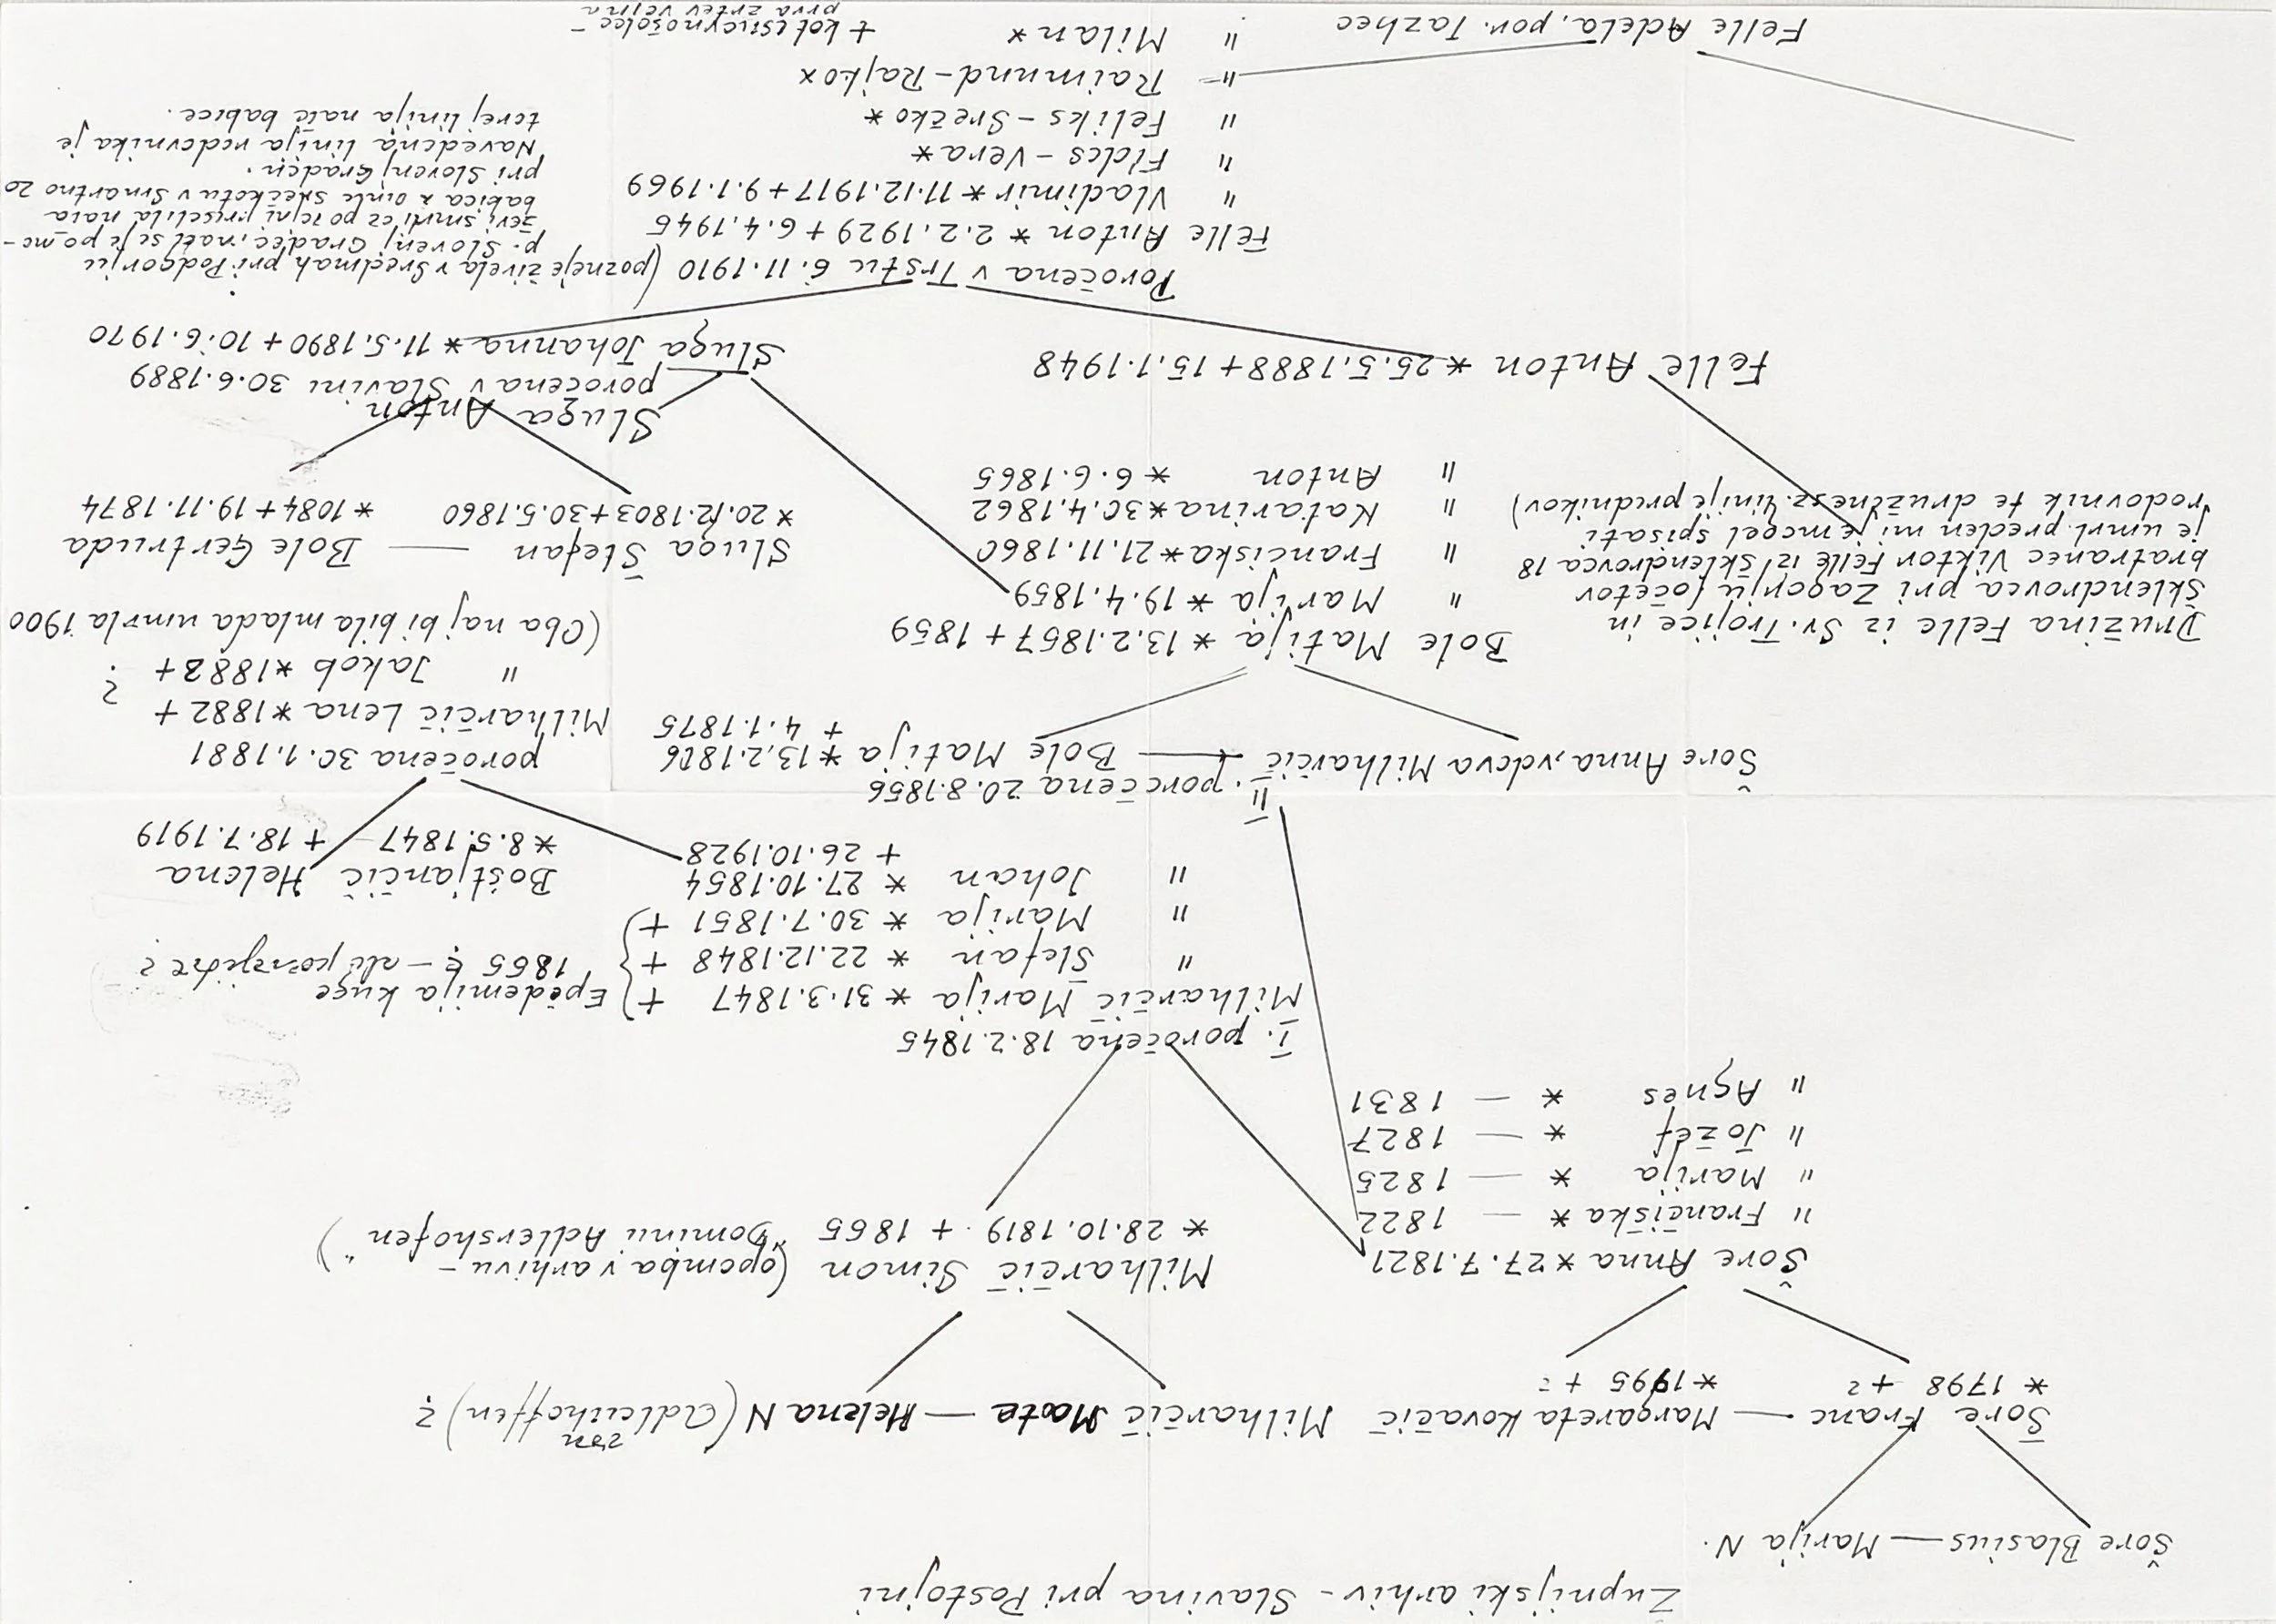 Župnijski arhiv - Slavina pri Postojni
Šore Blasius — Marija N.
Šore Franc — Margareta Kovačič
* 1798 + ?
* 1995 + ?
Milharčič Mate — Helena N (von ?
Šore Anna * 27.7.1821
" Frančiška * — 1822
" Marija * — 1825
" Jožef * — 1827
" Agnes * — 1831
Milharčič Simon (opomba v arhivu -
* 28.10.1819 + 1865 "Dominu Adlershofen")
I. poročena 18.2.1845
Milharčič Marija * 31.3.1847 +
" Štefan * 22.12.1848 +
" Marija * 30.7.1851 +
Epedemija kuge
1865 ? — ali ?
" Johan * 27.10.1854
+ 26.10.1928
Boštjančič Helena
* 8.5.1847 + 18.7.1919
II. poročena 20.8.1856
Šore Anna, vdova Milharčič — Bole Matija * 13.2.1826
+ 4.1.1875
poročena 30.1.1881
Milharčič Lena * 1882 +
" Jakob * 1883 + ?
(Oba naj bi bila mlada umrla 1900
Bole Matija * 13.2.1857 + 1859
" Marija * 19.4.1859
" Frančiska * 21.11.1860
" Katarina * 30.4.1862
" Anton * 6.6.1865
Družina Felle iz Sv. Trojice in
Šklendrovca pri Zagorju (očetov
bratranec Viktor Felle iz Šklendrovca 18
je umrl preden mi je mogel spisati
rodovnik te družine sz. linije prednikov)
Sluga Štefan — Bole Gertruda
* 20.12.1803 + 30.5.1860 * 1084 + 19.11.1874
Sluga Anton
poročena v Slavini 30.6.1889
Felle Anton * 25.5.1888 + 15.1.1948
Sluga Johanna * 11.5.1890 + 10.6.1970
Poročena v Trstu 6.11.1910 (pozneje živela v Sredmah pri Podgorju
p. Slovenj Gradec,
pri Slovenj Gradcu.
Navedena linija rodovnika je
torej linija naše babice.
Felle Anton * 2.2.1929 + 6.4.1945
" Vladimir * 11.12.1917 + 9.1.1969
" Fides - Vera *
" Feliks - Srečko *
" Raimund - Rajko x
" Milan * + kot
prva žrtev vojna
Felle Adela, por. Tazhec